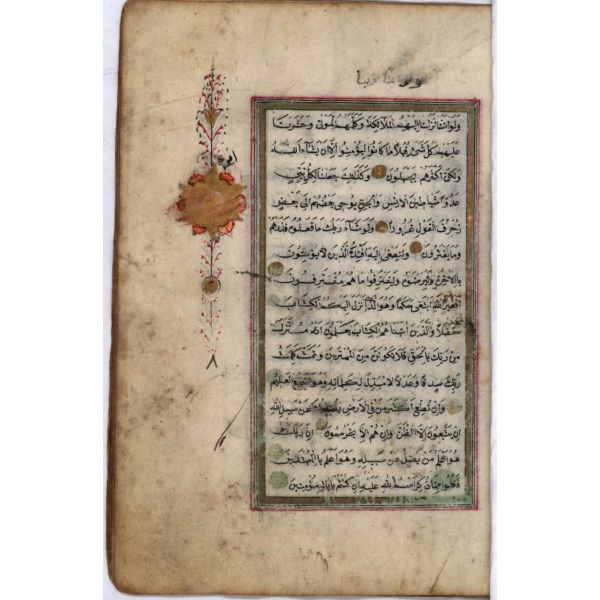 ولو اننا نزلنا اليهم الملائكة وكلمهم الموتى وحشرنا
عليهم كل شئ قبلا ما كانوا ليؤمنوا الا ان يشاء الله
ولكن اكثرهم يجهلون وكذلك جعلنا لكل نبي
عدوا شياطين الانس والجن يوحي بعضهم الى بعض
زخرف القول غرورا ولو شاء ربك ما فعلوه فذرهم
وما يفترون ولتصغى اليه افئدة الذين لا يؤمنون
بالاخرة وليرضوه وليقترفوا ما هم مقترفون
افغير الله ابتغي حكما وهو الذي انزل اليكم الكتاب
مفصلا والذين اتيناهم الكتاب يعلمون انه منزل
من ربك بالحق فلا تكونن من الممترين وتمت كلمت
ربك صدقا وعدلا لا مبدل لكلماته وهو السميع العليم
وان تطع اكثر من في الارض يضلوك عن سبيل الله
ان يتبعون الا الظن وان هم الا يخرصون ان ربك
هو اعلم من يضل عن سبيله وهو اعلم بالمهتدين
فكلوا مما ذكر اسم الله عليه ان كنتم باياته مؤمنين